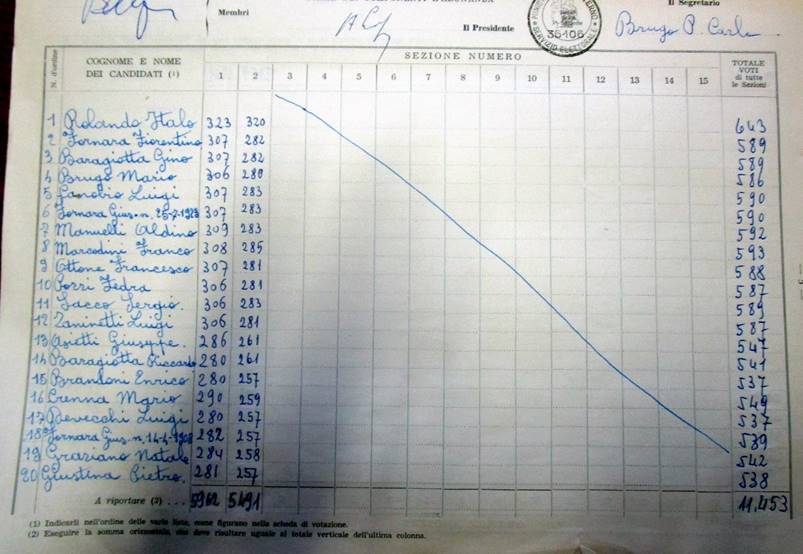 Il Segretario
Membri
Il Presidente
35106
SERVIZIO ELETTORALE
Brugo P. Carlo
N. d'ordine
COGNOME E NOME DEI CANDIDATI (1)
SEZIONE NUMERO
TOTALE VOTI di tutte le Sezioni
1 2 3 4 5 6 7 8 9 10 11 12 13 14 15
1 Rolando Italo 323 320 643
2 Fornara Fiorentino 307 282 589
3 Baragiotta Gino 307 282 589
4 Brugo Mario 306 280 586
5 Zanobio Luigi 307 283 590
6 Fornara Gius. n. 25-7-1923 307 283 590
7 Manuelli Aldino 309 283 592
8 Marcodini Franco 308 285 593
9 Ottone Francesco 307 281 588
10 Pozzi Fedra 306 281 587
11 Sacco Sergio. 306 283 589
12 Zaninetti Luigi 306 281 587
13 Asietti Giuseppe. 286 261 547
14 Baragiotta Riccardo 280 261 541
15 Brandoni Enrico 280 257 537
16 Crenna Mario 290 259 549
17 Devecchi Luigi 280 257 537
18 Fornara Gius. n. 14-4-1908 282 257 539
19 Graziano Natale 284 258 542
20 Giustina Pietro. 281 257 538
A riportare (2) . . . 5962 5491 11.453
(1) Indicarli nell'ordine delle varie liste, come figurano nella scheda di votazione.
(2) Eseguire la somma orizzontale, che deve risultare uguale al totale verticale dell'ultima colonna.